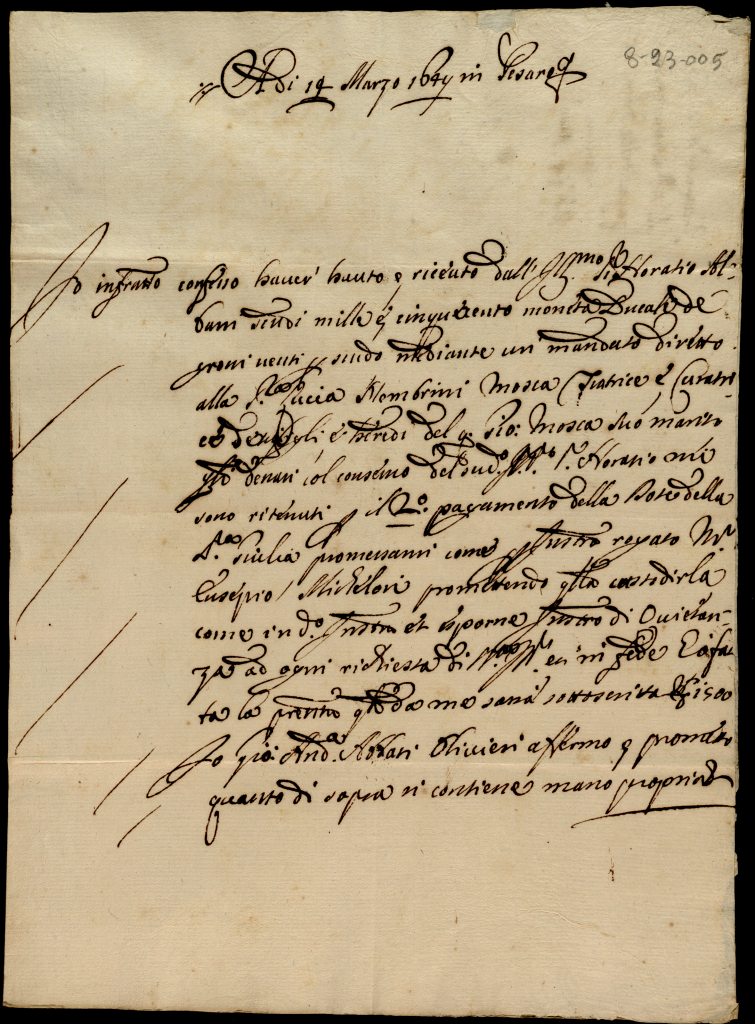 8-23-005
Adi 19 Marzo 1649 in Pesaro
Io infratto confesso haver' hauto e riceuto dall' Ill.mo S.r Horatio Al-
bani scudi mille e cinquecento moneta Ducale de
grossi venti p scudo mediante un' mandato diretto
alla S.ra Lucia Mosca Tutrice e Curatri-
ce de figli et heredi del q. Gio: Mosca suo marito
denari col consenso del sud.o S.r Horatio me
sono ritenuti p il 2.o pagamento della Dote della
S.ra Giulia promessami come p Instro rogato M.r
Eusepio promettendo custodirla
come in d.o Instro et esporne Instro di Quietan-
za ad ogni richiesta di et in fede è fa-
ta la pnte q da me sarà sottoscritta 1500
Io Gio: And.a Abbati Olivieri affermo e prometto
quanto di sopra si contiene mano propria